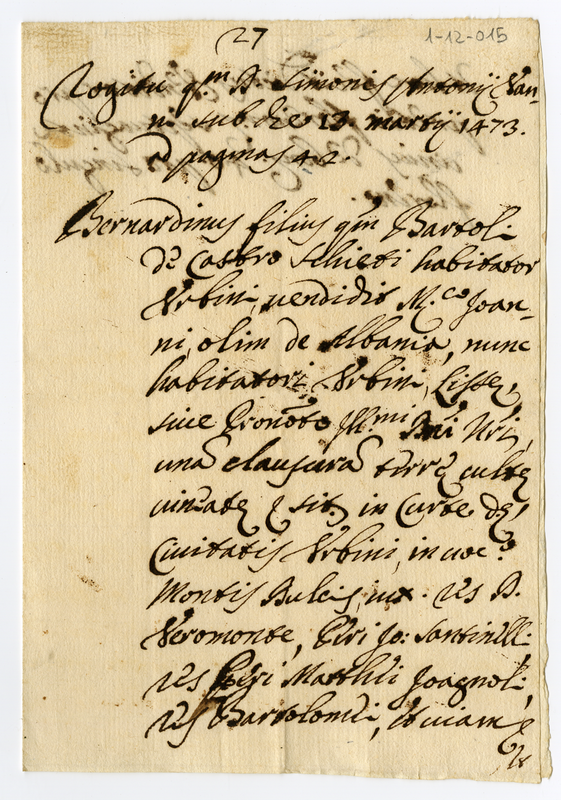 27
1-12-015
Rogitu qm D. Simonis Antonij Van-
ni sub die 13 martij 1473.
pagina 42.
Bernardinus filius qm Bartoli
de Castro Schieti habitator
Urbini, vendidit M.co Joan-
ni, olim de Albania, nunc
habitatori Urbini,
sive Ill.mi Dni Nri,
una clausura terre culte
vineate & sit in Curte de
Civitatis Urbini, in voc.
Montis Buleis, iux. res D.
Veromonte, Jo: Santinelli
res Matthei Joagnoli,
res Bartolomei, et viam